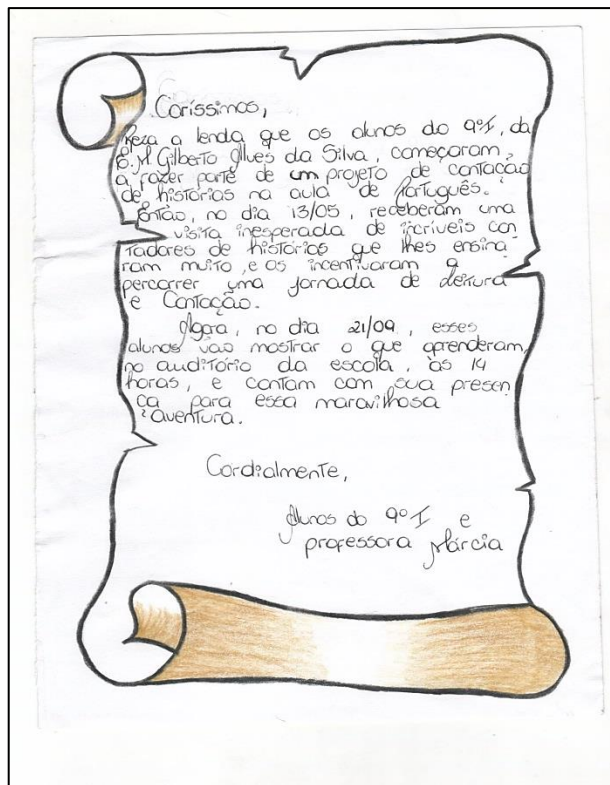 Caríssimos,
Reza a lenda que os alunos do 9º I, da
E.M Gilberto Alves da Silva, começaram,
a fazer parte de um projeto de contação
de histórias na aula de Português.
Então, no dia 13/05, receberam uma
visita inesperada de incríveis con
tadores de histórias que lhes ensina
ram muito, e os incentivaram a
percorrer uma jornada de Leitura
e Contação.
Agora, no dia 21/09, esses
alunos vão mostrar o que aprenderam,
no auditório da escola, às 14
horas, e contam com sua presen
ça para essa maravilhosa
aventura.
Cordialmente,
Alunos do 9º I e
professora Márcia